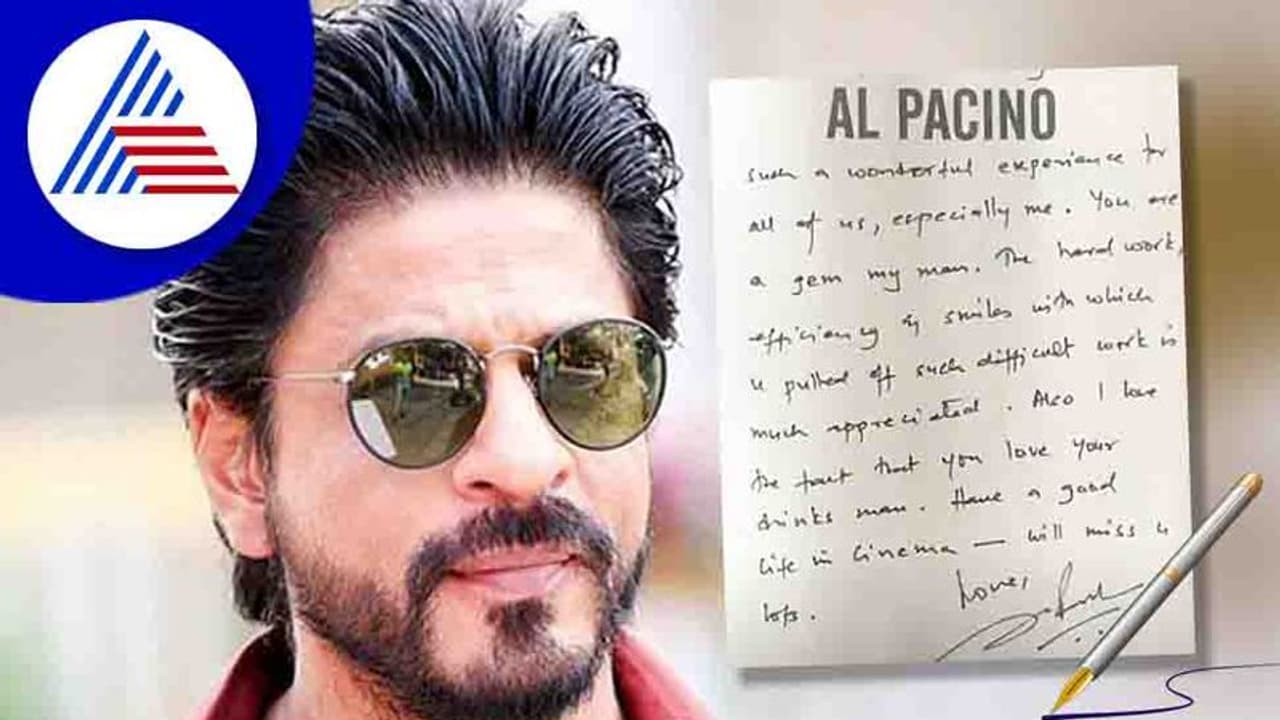 AL PACINO
such a wonderful experience for
all of us, especially me. You are
a gem my man. The hard work,
efficiency & smiles with which
u pulled off such difficult work is
much appreciated. Also I love
the fact that you love your
drinks man. Have a good
life in Cinema — will miss u
lots.
Love,